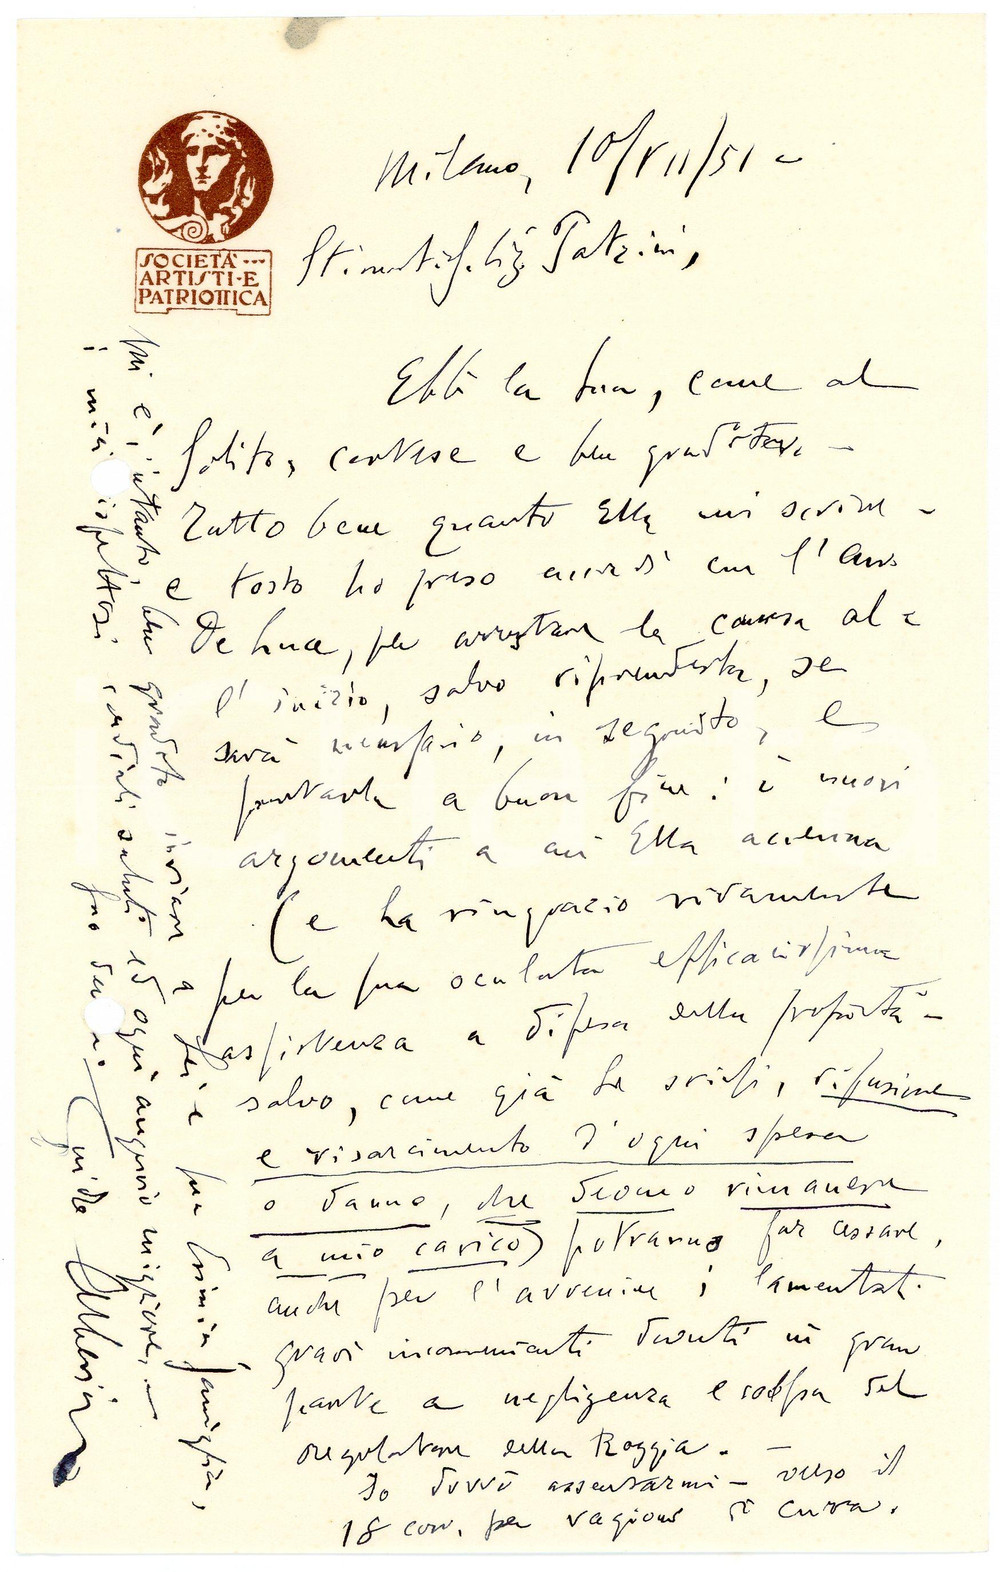 SOCIETÀ ···
ARTISTI·E
PATRIOTTICA
Milano, 10/VII/51 -
Ebbi la sua, come al
solito, cortese e ben gradita. -
Tutto bene quanto Ella mi scrive -
e tosto ho preso accordi con l'Avv
De Luca, per arrestare la causa al =
l'inizio, salvo riprenderla, se
sarà necessario, in seguito, e
portarla a buon fine: i nuovi
argomenti a cui Ella accenna
(e La ringrazio vivamente
per la sua oculata efficacissima
assistenza a difesa della proprietà -
salvo, come già Le scrissi, rifusione
e risarcimento d'ogni spesa
o danno, che devono rimanere
a mio carico) potranno far cessare,
anche per l'avvenire i lamentati
gravi inconvenienti dovuti in gran
parte a negligenza e colpa del
regolatore della Roggia. -
Io dovrò assentarmi - verso il
18 corr. per ragioni di cura.
Mi è, intanto, ben gradito inviare a Lei e sua famiglia,
i miei rispettosi cordiali saluti ed ogni augurio migliore. -
Suo dev.mo Guido